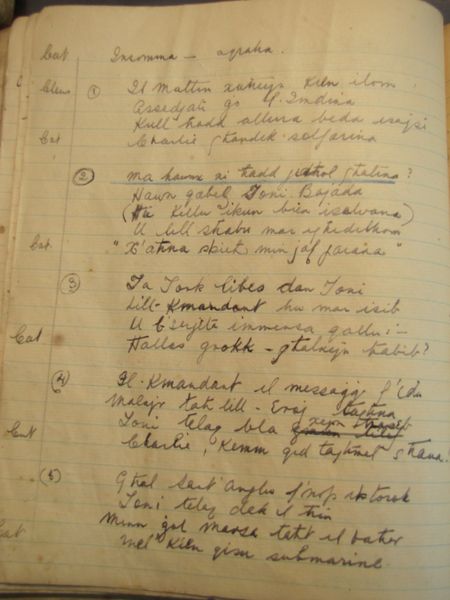 Cat Insomma - aqraha.
Chus ① Il Maltin kien ilom
Assedjati go l'Imdina
Kull hadd allura beda isejjah
Cat Charlie ghandek solfarina
② ma hawnx xi hadd johrol ghalina?
Hawn qabel Toni Bajada
(Hu Kellu ikun bien isalvana)
U lill shabu mar ghedilhom
Cat "X'ahna sbieh min jaf jarana"
③ Ta Tork libes dan Toni
Lill-Kmandant hu mar isib
U b'serjeta immensa qallu:-
Cat Hallas grokk - ghalxejn habib?
④ Il-Kmandant il messagg f'idu
Malajr tah lill-Eroj taghna
Toni telaq bla
Cat Charlie, Kemm qed taghmel shana!
⑤ Ghal Sant Anglu f'nofs it-torok
Toni telaq dak il hin
Minn gol Marsa taht il bahar
Cat Mel Kien qisu submarine.